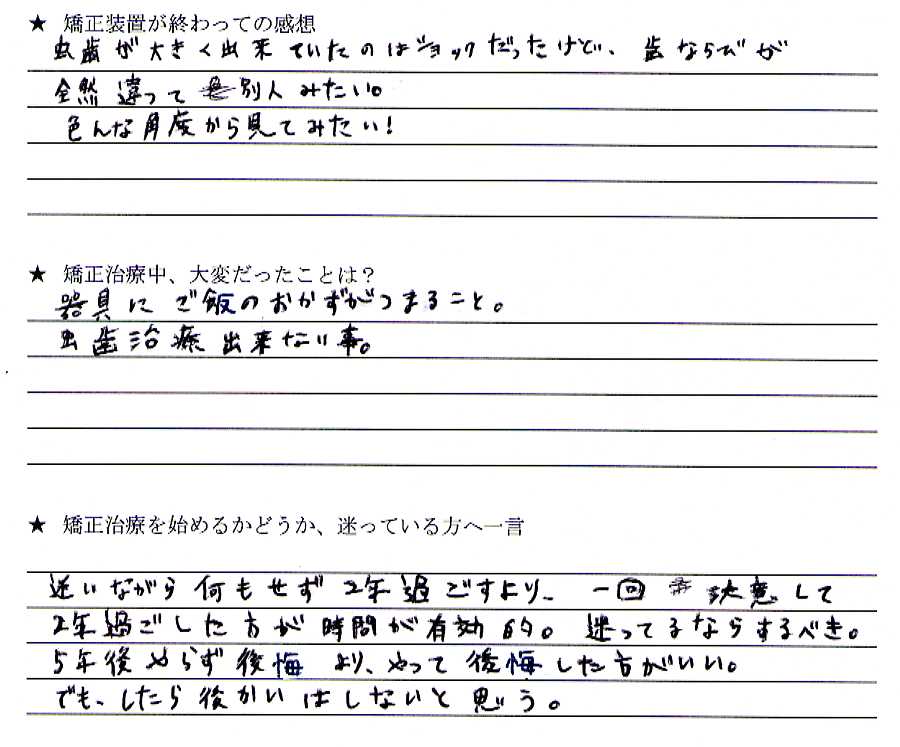 ★ 矯正装置が終わっての感想
虫歯が大きく出来ていたのはショックだったけど、歯ならびが
全然違って別人みたい。
色んな角度から見てみたい!
★ 矯正治療中、大変だったことは?
器具にご飯のおかずがつまること。
虫歯治療出来ない事。
★ 矯正治療を始めるかどうか、迷っている方へ一言
迷いながら何もせず2年過ごすより、一回決意して
2年過ごした方が時間が有効的。迷ってるならするべき。
5年後やらず後悔より、やって後悔した方がいい。
でも、したら後かいはしないと思う。